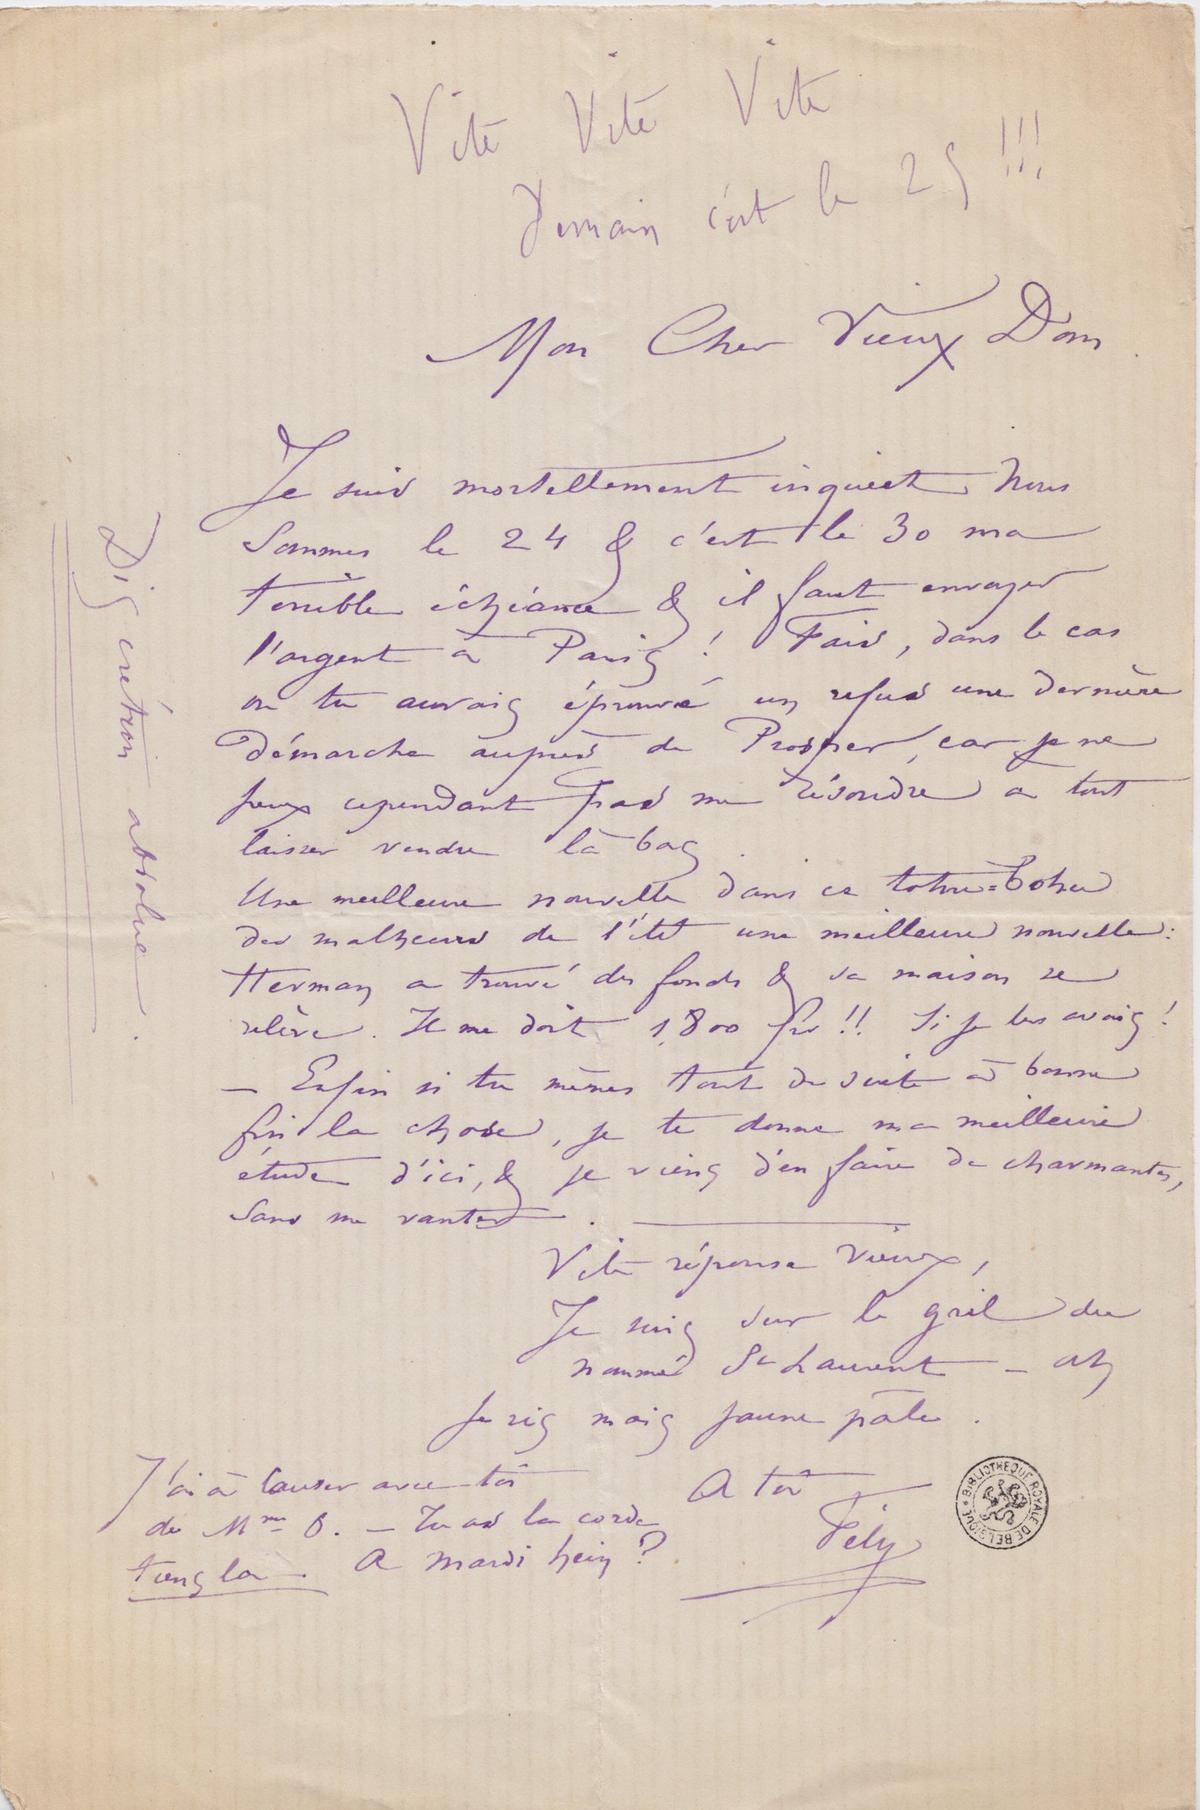 Vite Vite Vite
Demain c'est le 25 !!!
Mon Cher Vieux Dom
Je suis mortellement inquiet. Nous
sommes le 24 & c'est le 30 ma
terrible échéance & il faut envoyer
l'argent à Paris ! Fais, dans le cas
où tu aurais éprouvé un refus une dernière
démarche auprès de Prosper, car je ne
peux cependant pas me résoudre à tout
laisser vendre là bas.
Une meilleure nouvelle dans ce tohu=bohu
des malheurs de l'été une meilleure nouvelle :
Herman a trouvé des fonds & sa maison se
relève. Il me doit 1,800 frs !! Si je les avais !
— Enfin si tu mènes tout de suite à bonne
fin la chose, je te donne ma meilleure
étude d'ici, & je viens d'en faire de charmantes,
sans me vanter.
Vite réponse vieux,
Je suis sur le gril du
nommé St Laurent — ah
je ris mais jaune pâle.
A toi
Fély
J'ai à causer avec toi
de Mme B. — Tu as la corde
tiens la. A mardi hein ?
Discrétion absolue.
BIBLIOTHEQUE ROYALE DE BELGIQUE